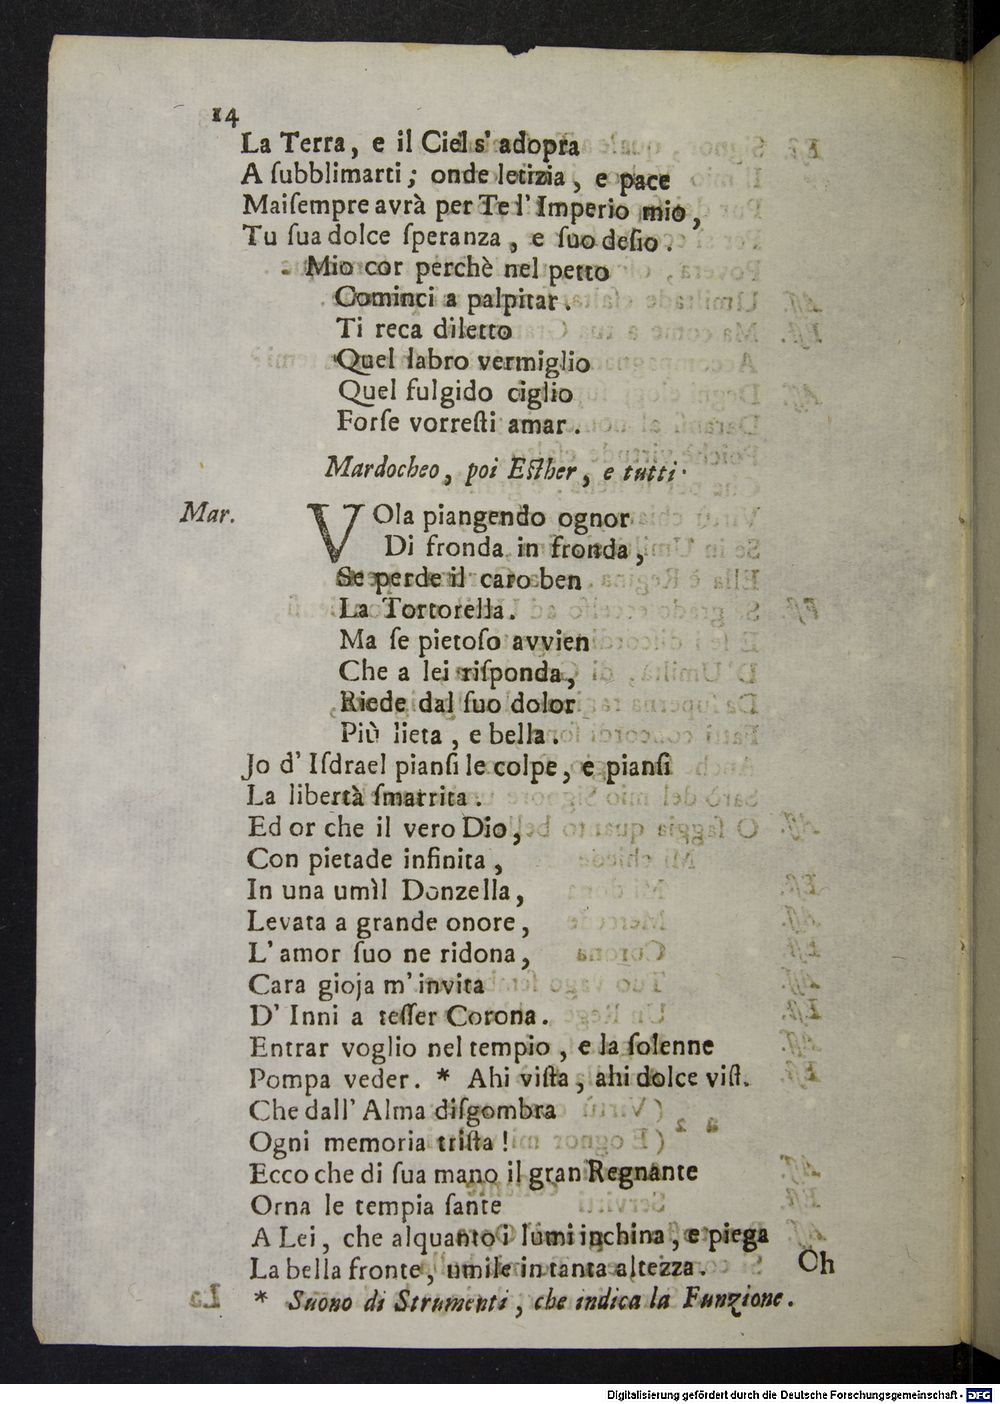 14
La Terra, e il Ciel s' adopra
A ſubblimarti; onde letizia, e pace
Maiſempre avrà per Te l' Imperio mio,
Tu ſua dolce ſperanza, e ſuo deſio.
Mio cor perchè nel petto
Cominci a palpitar.
Ti reca diletto
Quel labro vermiglio
Quel fulgido ciglio
Forſe vorreſti amar.
Mardocheo, poi Eſther, e tutti.
Mar. VOla piangendo ognor
Di fronda in fronda,
Se perde il caro ben
La Tortorella.
Ma ſe pietoſo avvien
Che a lei riſponda,
Riede dal ſuo dolor
Più lieta, e bella.
Jo d' Iſdrael pianſi le colpe, e pianſi
La libertà ſmarrita.
Ed or che il vero Dio,
Con pietade infinita,
In una umìl Donzella,
Levata a grande onore,
L' amor ſuo ne ridona,
Cara gioja m' invita
D' Inni a teſſer Corona.
Entrar voglio nel tempio, e la ſolenne
Pompa veder. * Ahi viſta, ahi dolce viſt.
Che dall' Alma diſgombra
Ogni memoria triſta!
Ecco che di ſua mano il gran Regnante
Orna le tempia ſante
A Lei, che alquanto i lumi inchina, e piega
La bella fronte, umile in tanta altezza.
Ch
* Suono di Strumenti, che indica la Funzione.
Digitalisierung gefördert durch die Deutsche Forschungsgemeinschaft - DFG